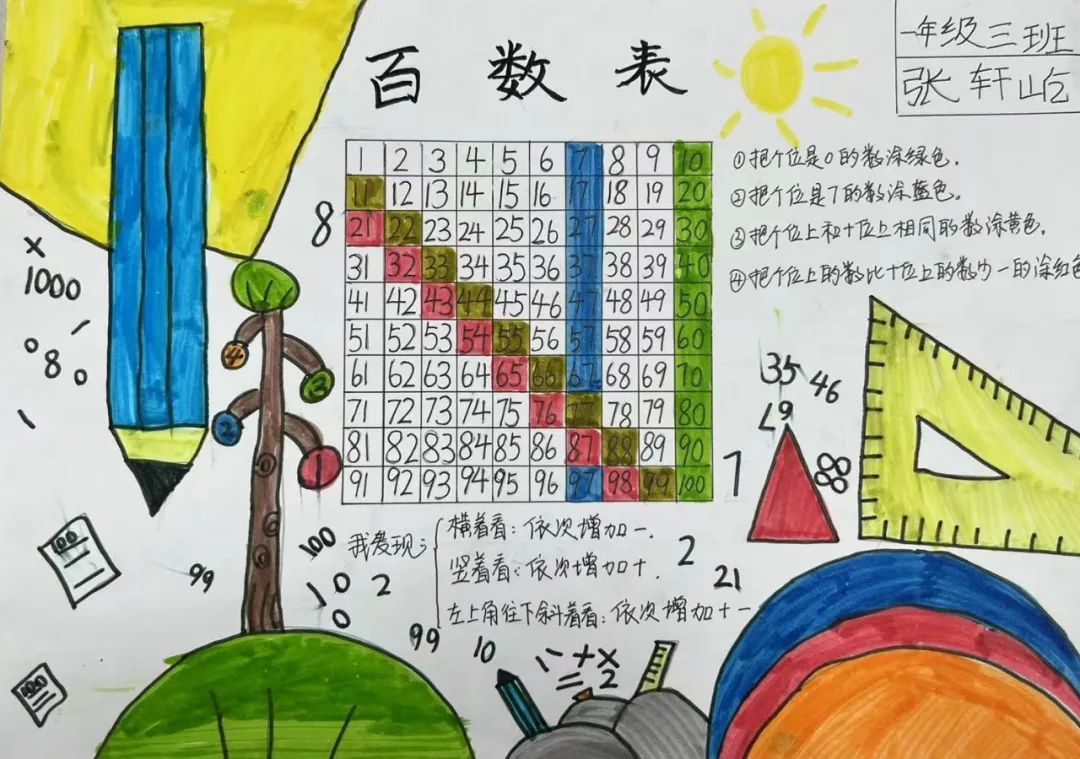 百数表
一年级三班
张轩屹
1 2 3 4 5 6 7 8 9 10
11 12 13 14 15 16 17 18 19 20
21 22 23 24 25 26 27 28 29 30
31 32 33 34 35 36 37 38 39 40
41 42 43 44 45 46 47 48 49 50
51 52 53 54 55 56 57 58 59 60
61 62 63 64 65 66 67 68 69 70
71 72 73 74 75 76 77 78 79 80
81 82 83 84 85 86 87 88 89 90
91 92 93 94 95 96 97 98 99 100
①把个位是0的数涂绿色.
②把个位是7的数涂蓝色。
③把个位上和十位上相同的数涂黄色.
④把个位上的数比十位上的数少一的涂红色
8
×
1000
÷
8
0
4
3
2
1
100
99
100
100
10
0
2
99
10
我发现:
横着看:依次增加一.
竖着看:依次增加十.
左上角往下斜着看:依次增加十一
2
21
7
35
46
88
+ ×
= 2